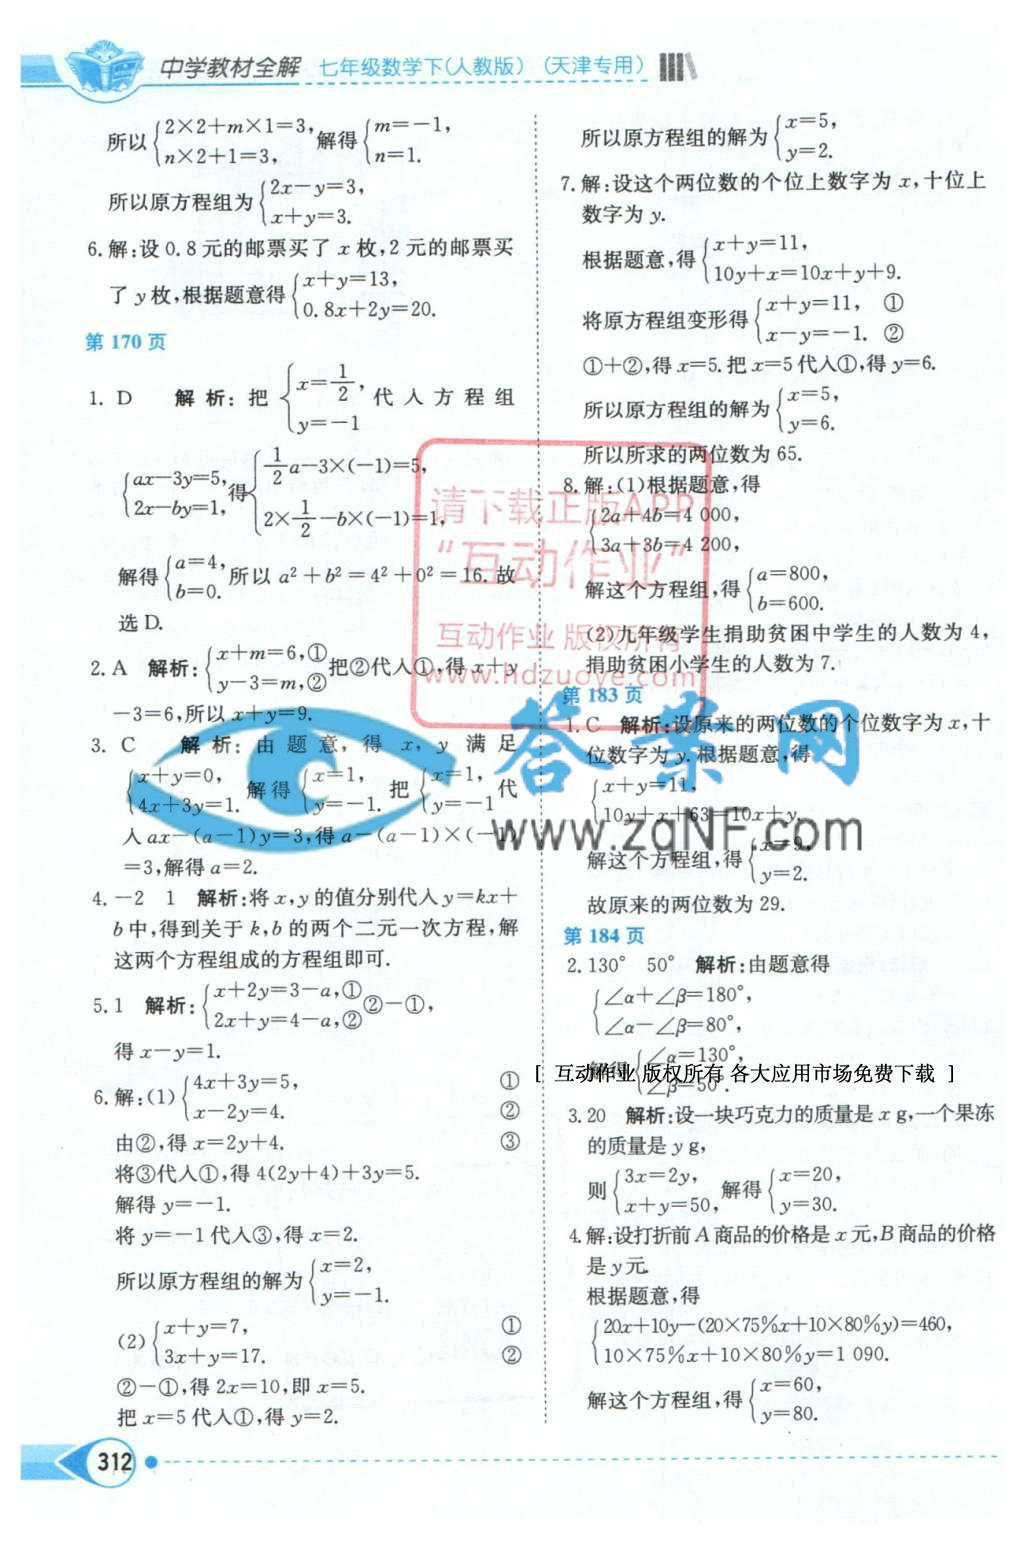 中学教材全解 七年级数学下(人教版) (天津专用)
所以{2×2+m×1=3, n×2+1=3, 解得{m=-1, n=1.
所以原方程组为{2x-y=3, x+y=3.
6.解:设 0.8 元的邮票买了 x 枚,2 元的邮票买
了 y 枚,根据题意得{x+y=13, 0.8x+2y=20.
第 170 页
1. D 解析:把{x=1/2, y=-1 代入方程组
{ax-3y=5, 2x-by=1, 得{1/2a-3×(-1)=5, 2×1/2-b×(-1)=1,
解得{a=4, b=0. 所以 a²+b²=4²+0²=16.故
选 D.
2. A 解析:{x+m=6,① y-3=m,② 把②代入①,得 x+y
-3=6,所以 x+y=9.
3. C 解析:由题意,得 x, y 满足
{x+y=0, 4x+3y=1. 解得{x=1, y=-1. 把{x=1, y=-1 代
入 ax-(a-1)y=3,得 a-(a-1)×(-1)
=3,解得 a=2.
4.-2 1 解析:将 x,y 的值分别代入 y=kx+
b 中,得到关于 k,b 的两个二元一次方程,解
这两个方程组成的方程组即可.
5.1 解析:{x+2y=3-a,① 2x+y=4-a,② ②-①,
得 x-y=1.
6.解:(1){4x+3y=5, ① x-2y=4. ②
由②,得 x=2y+4. ③
将③代入①,得 4(2y+4)+3y=5.
解得 y=-1.
将 y=-1 代入③,得 x=2.
所以原方程组的解为{x=2, y=-1.
(2){x+y=7, ① 3x+y=17. ②
②-①,得 2x=10,即 x=5.
把 x=5 代入①,得 y=2.
所以原方程组的解为{x=5, y=2.
7.解:设这个两位数的个位上数字为 x,十位上
数字为 y.
根据题意,得{x+y=11, 10y+x=10x+y+9.
将原方程组变形得{x+y=11, ① x-y=-1. ②
①+②,得 x=5.把 x=5 代入①,得 y=6.
所以原方程组的解为{x=5, y=6.
所以所求的两位数为 65.
8.解:(1)根据题意,得
{2a+4b=4 000, 3a+3b=4 200,
解这个方程组,得{a=800, b=600.
(2)九年级学生捐助贫困中学生的人数为 4,
捐助贫困小学生的人数为 7.
第 183 页
1.C 解析:设原来的两位数的个位数字为 x,十
位数字为 y.根据题意,得
{x+y=11, 10y+x+63=10x+y.
解这个方程组,得{x=9, y=2.
故原来的两位数为 29.
第 184 页
2.130° 50° 解析:由题意得
{∠α+∠β=180°, ∠α-∠β=80°,
解得{∠α=130°, ∠β=50°.
3.20 解析:设一块巧克力的质量是 x g,一个果冻
的质量是 y g,
则{3x=2y, x+y=50, 解得{x=20, y=30.
4.解:设打折前 A 商品的价格是 x 元,B 商品的价格
是 y 元.
根据题意,得
{20x+10y-(20×75%x+10×80%y)=460, 10×75%x+10×80%y=1 090.
解这个方程组,得{x=60, y=80.
312
请下载正版APP
“互动作业”
互动作业 版权所有
www.hdzuoye.com
答案网
www.zqNF.com
[ 互动作业 版权所有 各大应用市场免费下载 ]